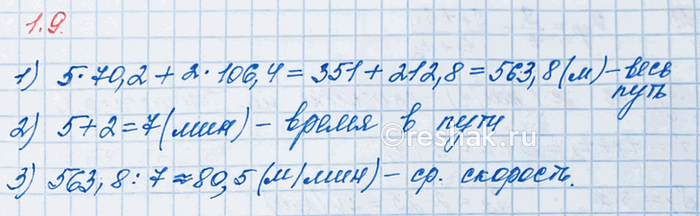 1.9.
1) 5·70,2 + 2·106,4 = 351 + 212,8 = 563,8 (м) – весь
путь
2) 5 + 2 = 7 (мин) – время в пути
©reshak.ru
3) 563,8 : 7 ≈ 80,5 (м/мин) – ср. скорость.